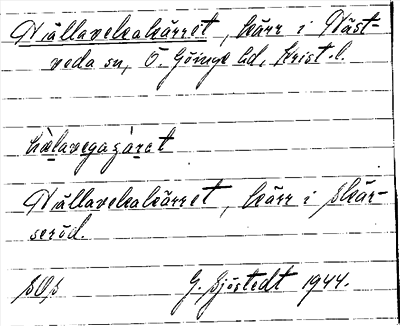 Nällavekakärret, kärr i Väst-
veda sn, Ö. Göinge hd, Krist. l.
Nällavekakärret, kärr i Skär-
seröd.
G. Sjöstedt 1944.